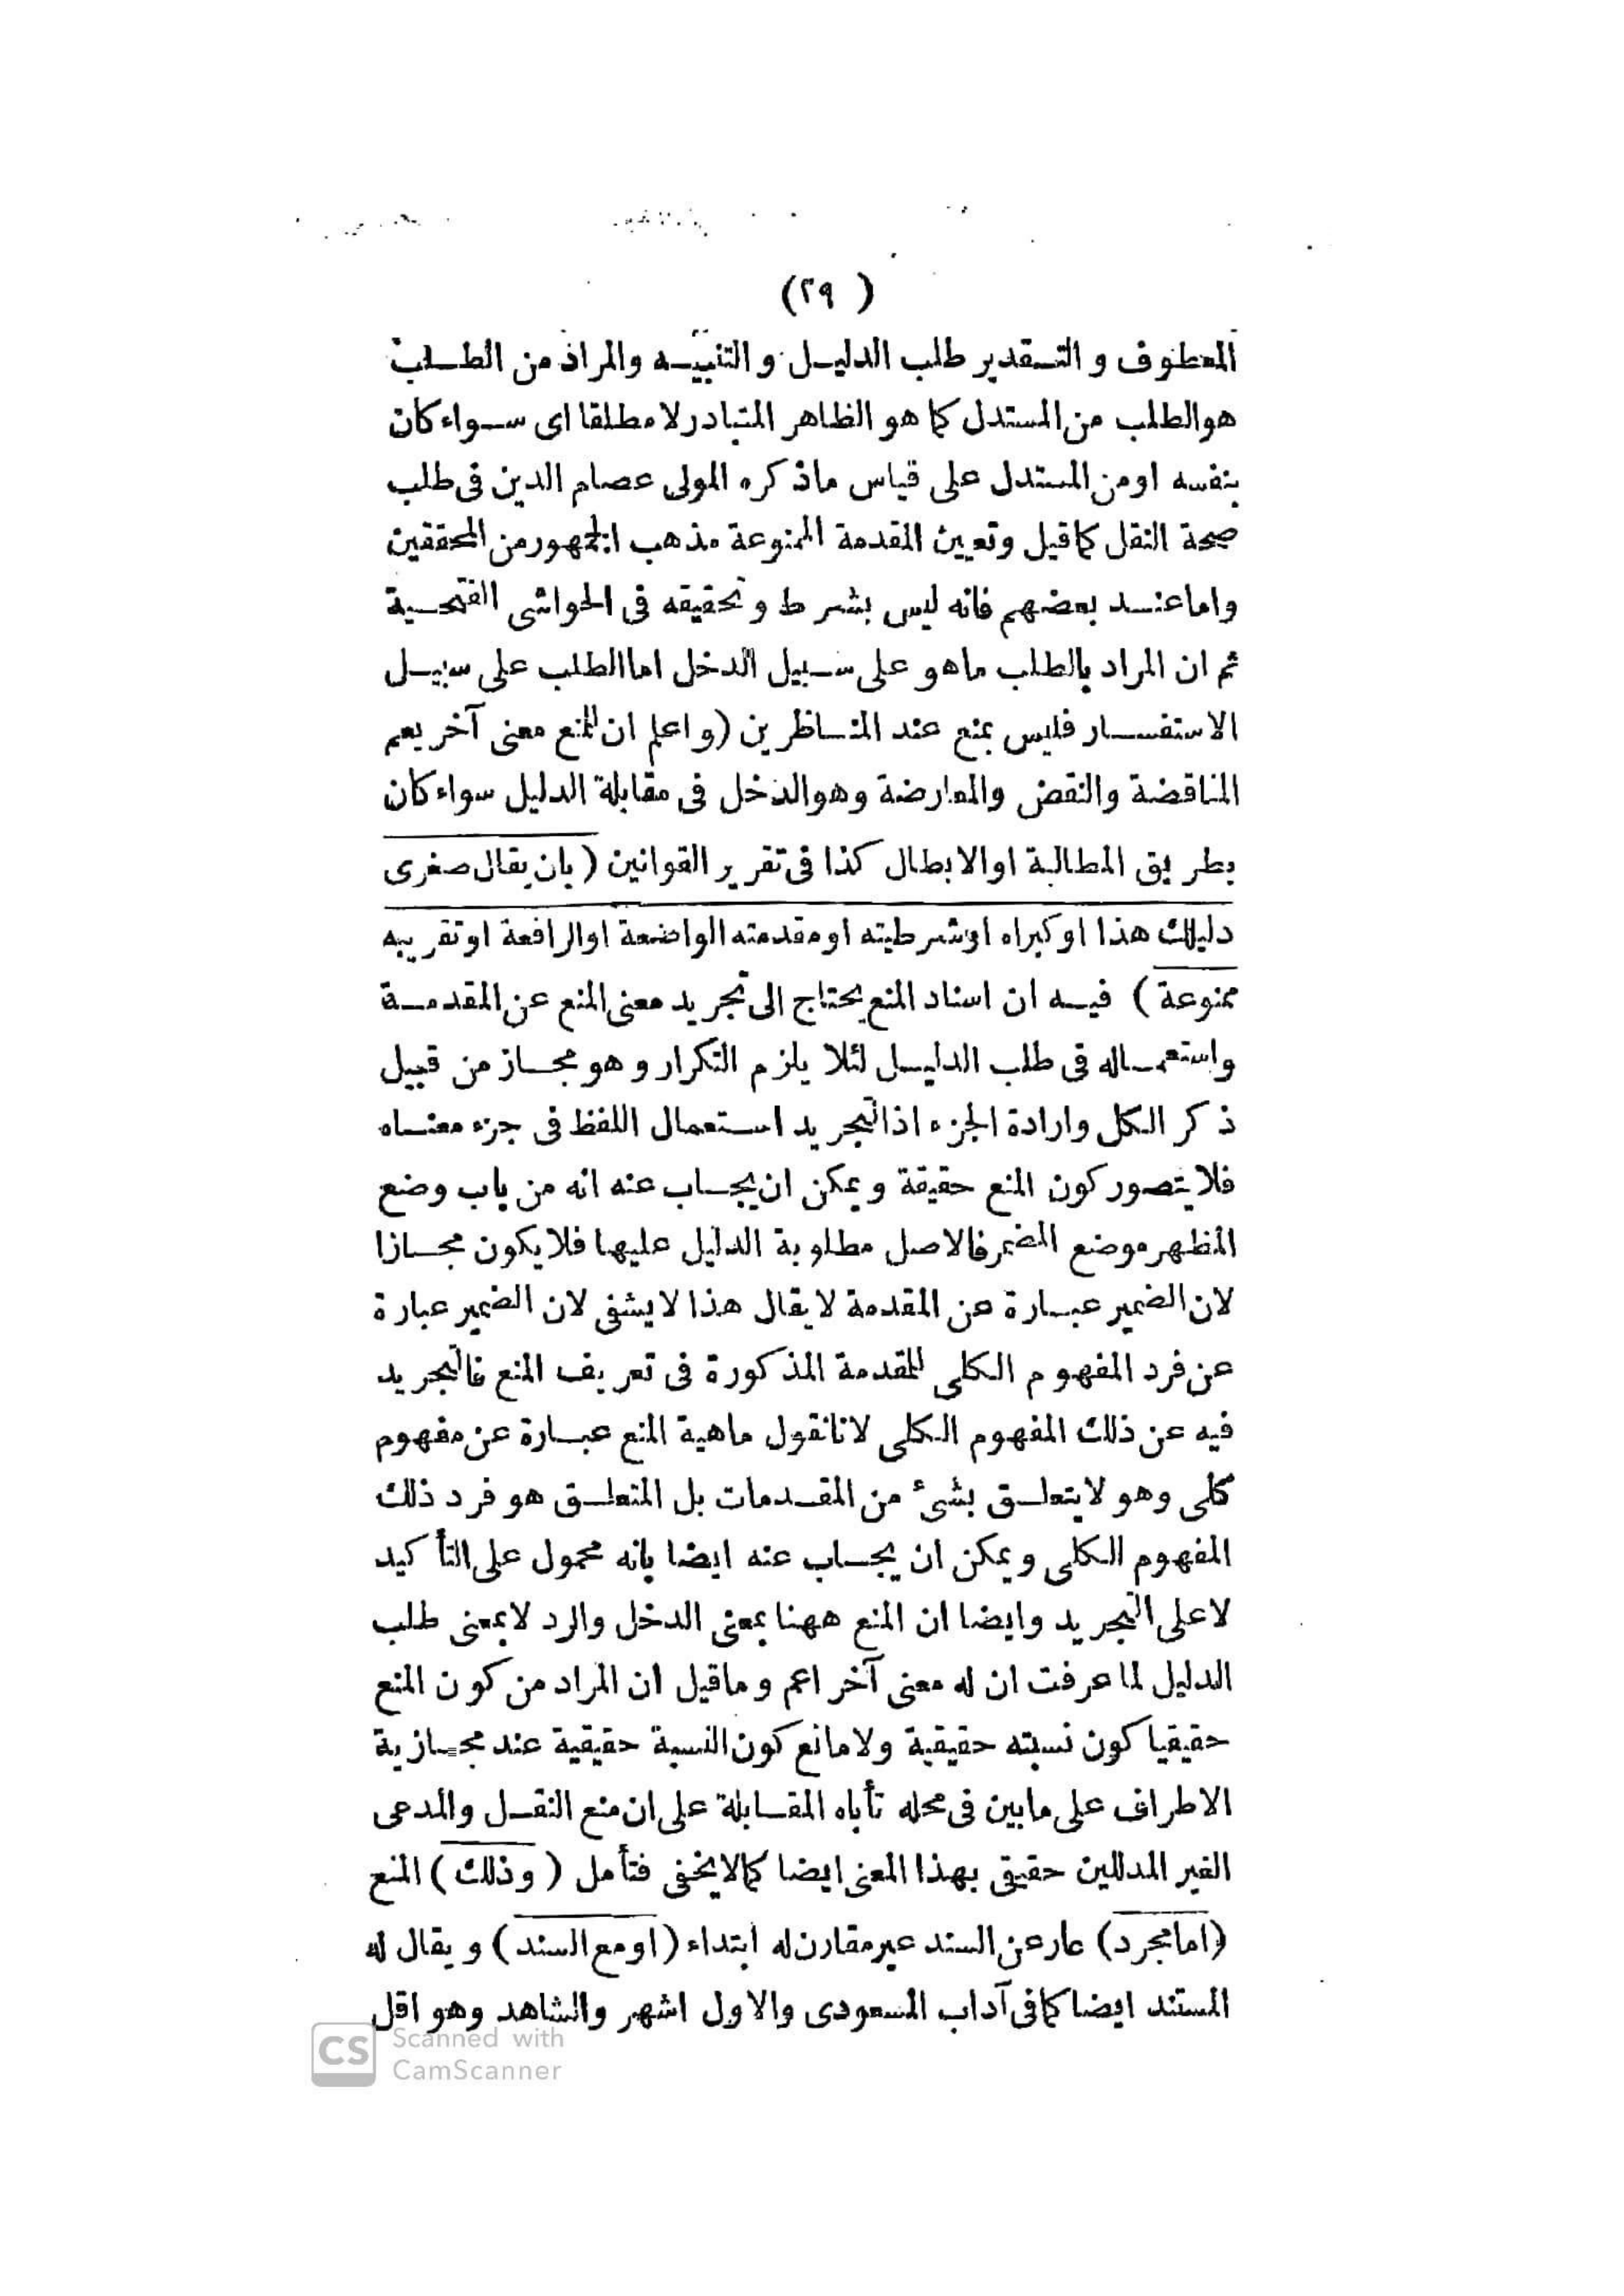 (٢٩)
المعطوف والتقدير طلب الدليل والتنبيه والمراد من الطلب
هو الطلب من المستدل كما هو الظاهر المتبادر لا مطلقا اى سواء كان
بنفسه او من المستدل على قياس ماذكره المولى عصام الدين فى طلب
صحة النقل كما قيل وتعيين المقدمة الممنوعة مذهب الجمهور من المحققين
واما عند بعضهم فانه ليس بشرط وتحقيقه فى الحواشى الفتحية
ثم ان المراد بالطلب ماهو على سبيل الدخل اما الطلب على سبيل
الاستفسار فليس بمنع عند المناظرين (واعلم ان للمنع معنى آخر يعم
المناقضة والنقض والمعارضة وهو الدخل فى مقابلة الدليل سواء كان
بطريق المطالبة او الابطال كذا فى تقرير القوانين (بان يقال صغرى
دليلك هذا او كبراه او شرطيته او مقدمته الواضعة او الرافعة او تقريبه
ممنوعة) فيه ان اسناد المنع يحتاج الى تجريد معنى المنع عن المقدمة
واستعماله فى طلب الدليل لئلا يلزم التكرار وهو مجاز من قبيل
ذكر الكل وارادة الجزء اذ التجريد استعمال اللفظ فى جزء معناه
فلا يتصور كون المنع حقيقة ويمكن ان يجاب عنه انه من باب وضع
المظهر موضع المضمر فالاصل مطلوبة الدليل عليها فلا يكون مجازا
لان الضمير عبارة عن المقدمة لا يقال هذا لا يشفى لان الضمير عبارة
عن فرد المفهوم الكلى للمقدمة المذكورة فى تعريف المنع فالتجريد
فيه عن ذلك المفهوم الكلى لانا نقول ماهية المنع عبارة عن مفهوم
كلى وهو لا يتعلق بشئ من المقدمات بل المتعلق هو فرد ذلك
المفهوم الكلى ويمكن ان يجاب عنه ايضا بانه محمول على التأكيد
لا على التجريد وايضا ان المنع ههنا بمعنى الدخل والرد لا بمعنى طلب
الدليل لما عرفت ان له معنى آخر اعم وما قيل ان المراد من كون المنع
حقيقيا كون نسبته حقيقية ولا مانع كون النسبة حقيقية عند مجازية
الاطراف على ما بين فى محله تأباه المقابلة على ان منع النقل والمدعى
الغير المدللين حقيقى بهذا المعنى ايضا كما لا يخفى فتأمل (وذلك) المنع
(اما مجرد) عار عن السند غير مقارن له ابتداء (او مع السند) ويقال له
المستند ايضا كما فى آداب المسعودى والاول اشهر والشاهد وهو اقل
CS Scanned with
CamScanner